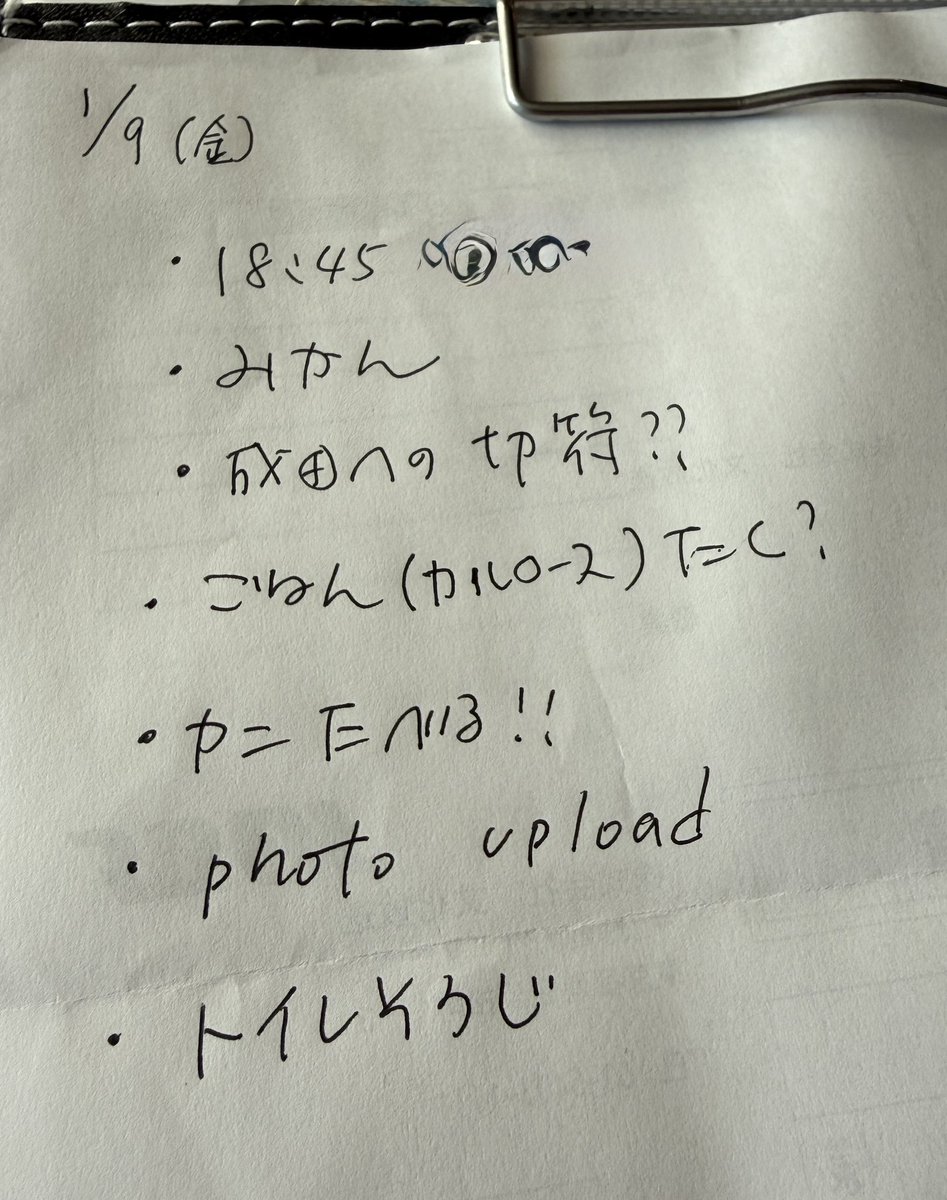 1/9(金)
・18:45
・みかん
・成田への切符??
・ごはん(カルロース)たく?
・カニたべる!!
・photo upload
・トイレそうじ